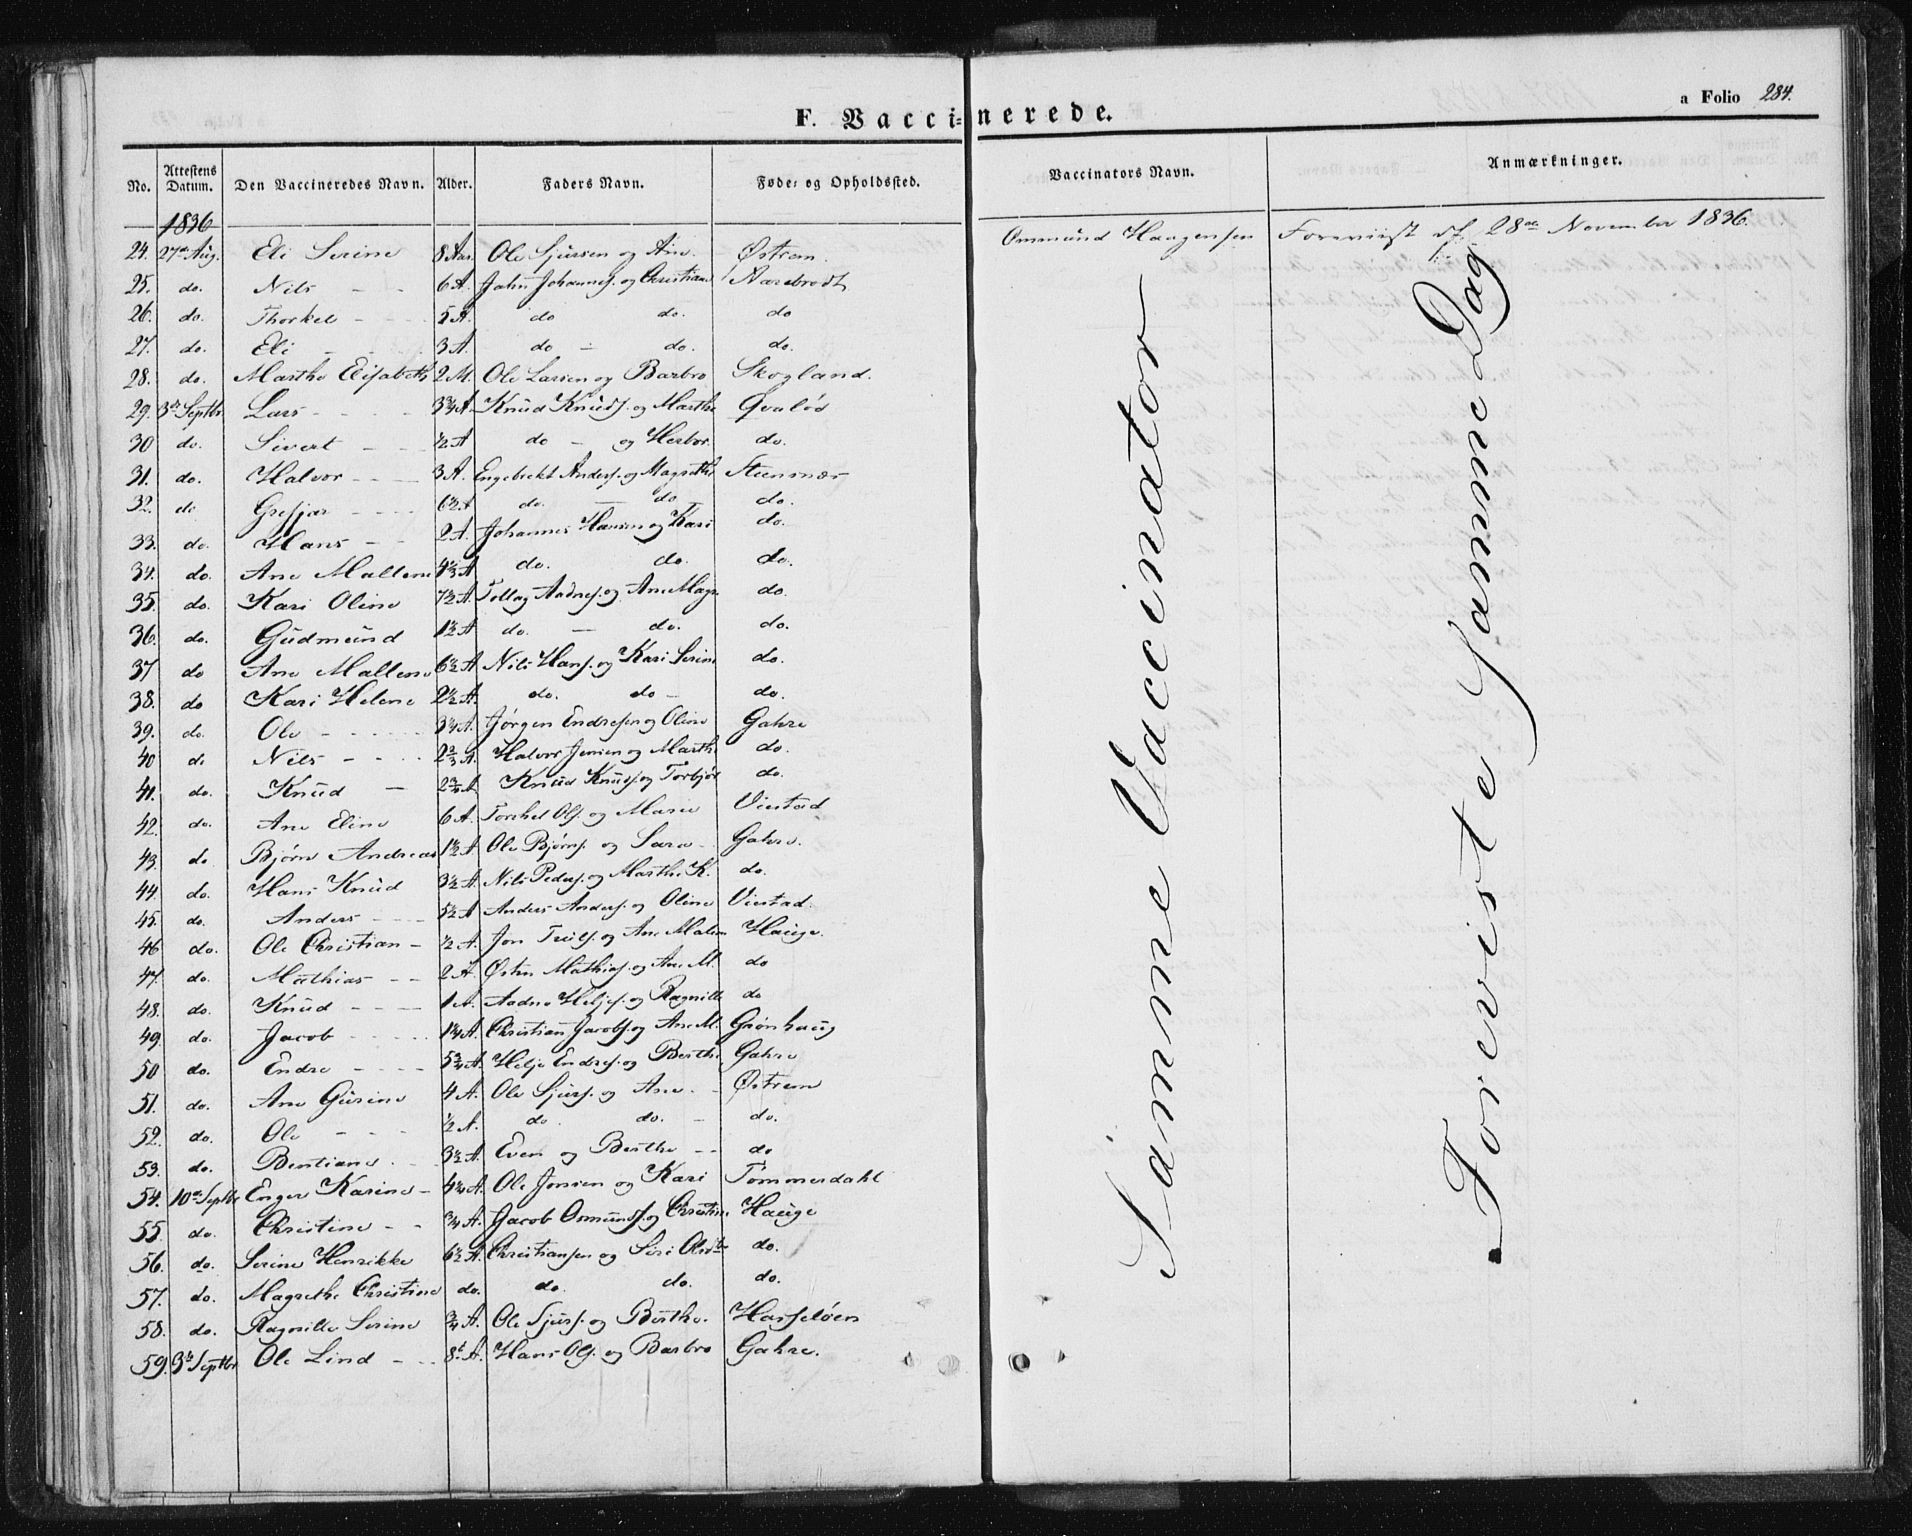 a Folio 284.
F. Vaccinerede.
No. Attestens Datum. Den Vaccineredes Navn. Alder. Faders Navn. Føde- og Opholdssted. Vaccinators Navn. Anmærkninger.
1836
24. 27de Aug. Eli Serine 8 Aar. Ole Sjursen og Ane. Østrem. Ommund Haagensen Foreviist d. 28de November 1836.
25. do. Nils - - 6 A. Jahn Johannes. og Christiane
26. do. Thorkel - - 5 A. do do. do
27. do. Eli - 3 A. do - do. do.
28. do. Marthe Elisabeth 2 M. Ole Larsen og Barbro Skogland.
29. 3de Septbr. Lars - - 3¾ A. Knud Knuds. og Marthe Qvaløe
30 do. Sivert - - ½ A do - og Herbor. do.
31. do. Halvor - - 3 A. Engebrekt Anders. og Magrethe Steensnæs
32. do Gresjar - - 6½ A do. - do do.
33. do. Hans - - 2 A. Johannes Hansen og Kari do.
34. do. Ane Mallene 4⅔ A do. do. do.
35. do. Kari Oline 7½ A. Tollag Aadnes. og Ane Magr. do.
36. do. Gudmund 1½ A do. - do. do.
37 do Ane Mallene 6½ A Nils Hans. og Kari Serine do.
38. do Kari Helene 2½ A. do. do - do.
39. do. Ole - - 3¼ A. Jørgen Endresen og Oline Gahre
40 do Nils - - 2⅔ A. Halvor Jensen og Marthe do.
41. do. Knud - 2¾ A Knud Knuds. og Torbjør do.
42. do. Ane Eline 6 A. Torchel Ols. og Marie Viestad
43. do Bjørn Andreas 1½ A Ole Bjørns. og Sara - Gahre.
44. do. Hans Knud 3½ A. Nils Peders. og Marthe K. do.
45. do. Anders - - 5½ A Anders Anders. og Oline Viestad.
46 do. Ole Christian - ½ A. Jon Truls. og Ane Malen Hauge.
47. do. Mathias - - 2 A. Østen Mathias. og Ane M. do
48. do. Knud - - 1 A. Aadne Heljes. og Ragnille do
49. do. Jacob - - 1¼ A. Christian Jacobs. og Ane M. Grønhaug
50 do. Endre - - 5¾ A. Helje Endres. og Berthe Gahre
51. do. Ane Gurine 4 A. Ole Sjurs. og Ane - Østrem
52. do. Ole - - ½ A. do. do. - do.
53. do. Bentiane - 3½ A. Even og Berthe - - do
54. 10de Septbr Enger Karine - 4¼ A. Ole Jensen og Kari Tømmerdahl
55. do. Christine - - ¾ A. Jacob Ommunds. og Christine Hauge
56. do. Serine Henrikke 6½ A. Christiansen og Siri do.
57. do. Magrethe Christine do. do. do. do.
58. do. Ragnille Serine ¾ A. Ole Sjurs. og Berthe. Hasseløen
59. 3de Septbr Ole Lind - - 8 A. Hans Ols. og Barbro Gahre.
Samme Vaccinator
Foreviste Samme Dag